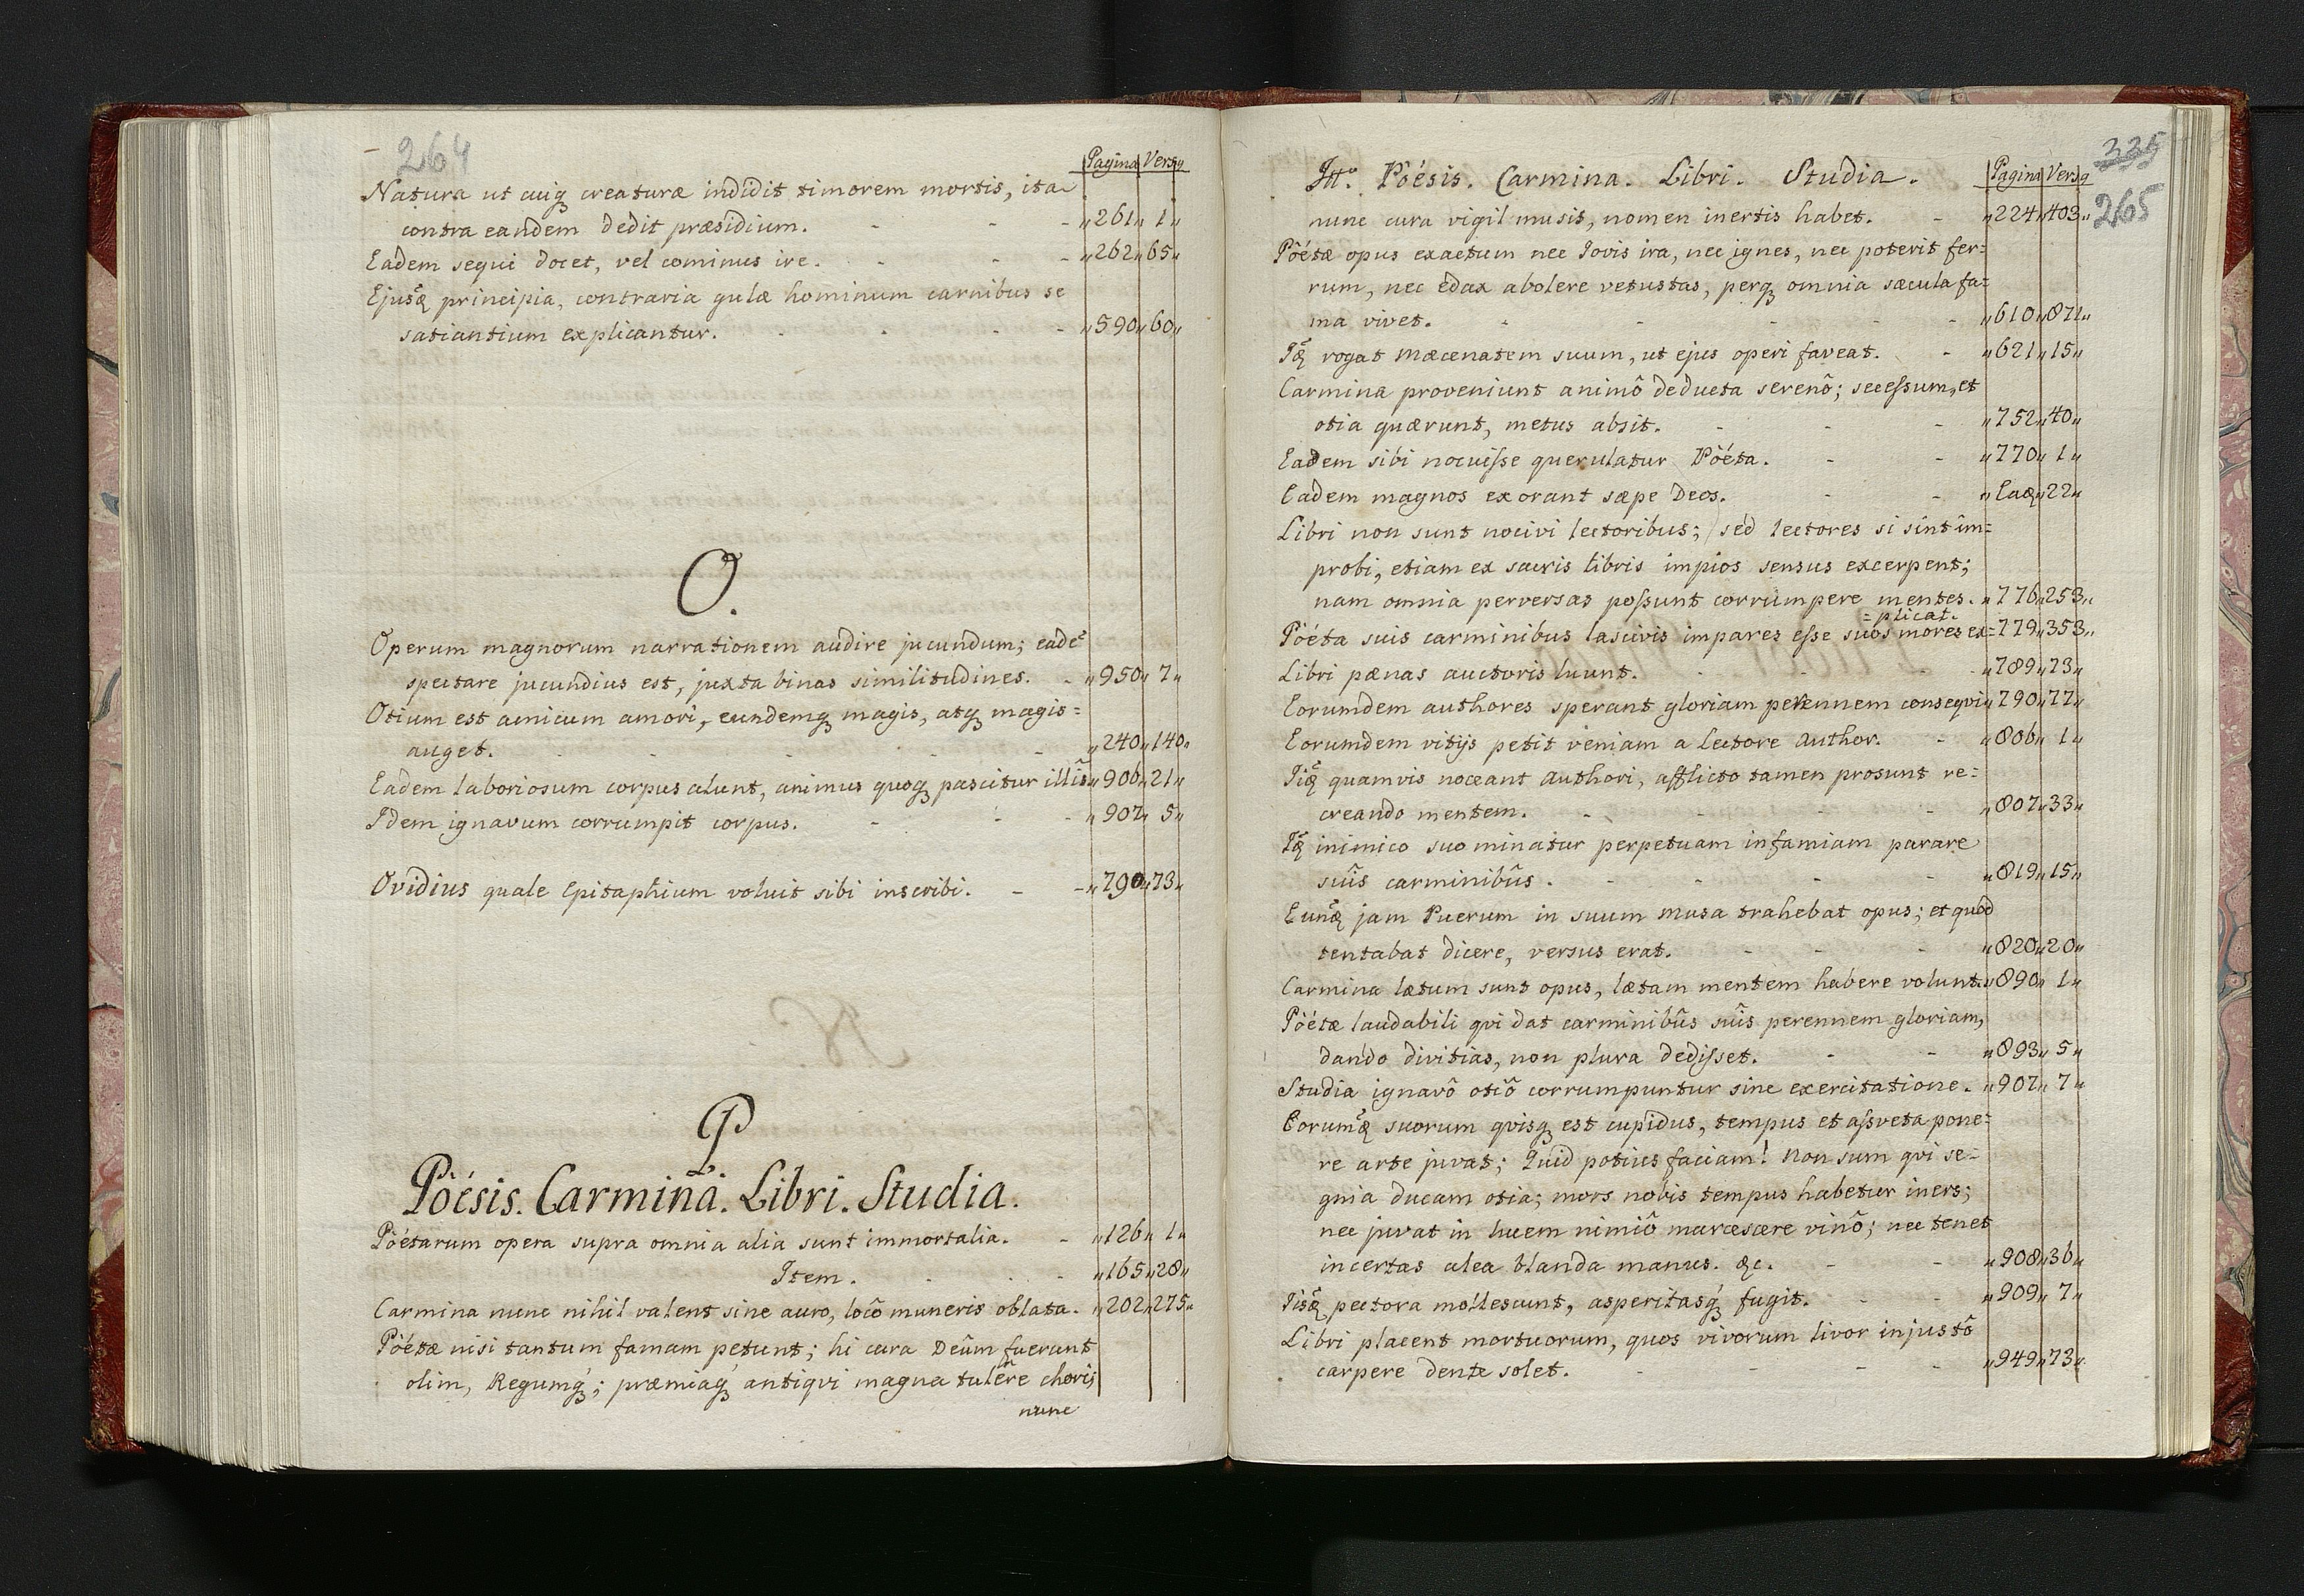 264
Pagina Versꝯ
Natura ut cuiqꝫ creaturæ indidit timorem mortis, ita
contra eandem dedit præsidium. - - - „261„ 1„
Eadem sequi docet, vel cominus ire. - - - „262„65„
principia, contraria gulæ hominum carnibus se
satiantium explicantur. - - - - „590„60„
O.
Operum magnorum narrationem audire jucundum; eadē
spectare jucundius est, juxta binas similitudines. - „950„ 7„
Otium est amicum amori, eundemqꝫ magis, atqꝫ magis=
auget. - - - - - „240„140„
Eadem laboriosum corpus alunt, animus quoqꝫ pascitur illîs „906„21„
Idem ignavum corrumpit corpus. - - - „907„ 5„
Ovidius quale Epitaphium voluit sibi inscribi. - - „790„73„
P
Pöésis. Carmina. Libri. Studia.
Pöétarum opera supra omnia alia sunt immortalia. - „126„ 1„
Item. - - - „165„28„
Carmina nunc nihil valent sine auro, locô muneris oblata. „202„275„
Pöétæ nisi tantum famam petunt; hi cura Deûm fuerunt
olim, Regumqꝫ; præmiaqꝫ antiqvi magna tulêre chori;
nunc
335
265
Pöésis. Carmina. Libri. Studia. Pagina Versꝯ
nunc cura vigil musis, nomen inertis habet. - „224„403„
Pöétæ opus exactum nec Jovis ira, nec ignes, nec poterit fer=
rum, nec edax abolere vetustas, perqꝫ omnia sæcula fa=
ma vivet. - - - - - „610„871„
rogat Mæcenatem suum, ut ejus operi faveat. - „621„15„
Carmina proveniunt animô deducta serenô; secessum, et
otia quærunt, metus absit. - - - „752„40„
Eadem sibi nocuisse querulatur Pöéta. - - „770„ 1„
Eadem magnos exorant sæpe Deos. - - 22„
Libri non sunt nocivi lectoribus; sed lectores si sint im=
probi, etiam ex sacris libris impios sensus excerpent;
nam omnia perversas possunt corrumpere mentes. „776„253„
=plicat.
Pöéta suis carminibus lascivis impares esse suos mores ex= 779„353„
Libri pænas auctoris luunt. - - - „789„73„
Eorumdem authores sperant gloriam perennem conseqvi „790„77„
Eorumdem vitijs petit veniam a Lectore Author. - „806„ 1„
quamvis noceant Authori, afflicto tamen prosunt re=
creando mentem. - - - - „807„33„
inimico suo minatur perpetuam infamiam parare
suîs carminibûs. - - - - „819„15„
jam Puerum in suum Musa trahebat opus; et quod
tentabat dicere, versus erat. - - - „820„20„
Carmina lætum sunt opus, lætam mentem habere volunt. „890„ 1„
Pöétæ laudabili qvi dat carminibûs suîs perennem gloriam,
dando divitias, non plura dedisset. - - „893„ 5„
Studia ignavô otiô corrumpuntur sine exercitatione. „907„ 7„
suorum qvisqꝫ est cupidus, tempus et assveta pone=
re arte juvat; Quid potius faciam! Non sum qvi se=
gnia ducam otia; mors nobis tempus habetur iners;
nec juvat in lucem nimiô marcescere vinô; nec tenet
incertas alea blanda manus. &c. - - „908„36„
pectora mollescunt, asperitasqꝫ fugit. - - „909„ 7„
Libri placent mortuorum, quos vivorum livor injustô
carpere dente solet. - - - - „949„73„